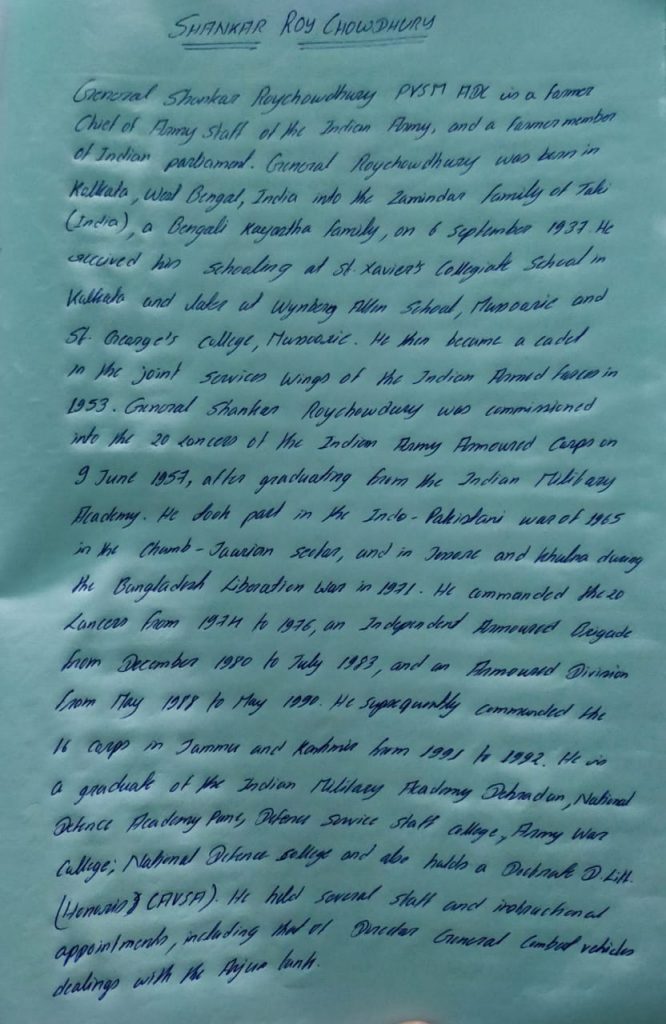 SHANKAR ROY CHOWDHURY
General Shankar Roychowdhury PVSM ADC is a former
Chief of Army Staff of the Indian Army, and a former member
of Indian parliament. General Roychowdhury was born in
Kolkata, West Bengal, India into the Zamindar family of Taki
(India), a Bengali Kayastha family, on 6 September 1937. He
received his schooling at St. Xavier's Collegiate School in
Kolkata and later at Wynberg Allen School, Mussoorie and
St. George's College, Mussoorie. He then became a cadet
in the joint services wings of the Indian Armed forces in
1953. General Shankar Roychowdury was commissioned
into the 20 Lancers of the Indian Army Armoured Corps on
9 June 1957, after graduating from the Indian Military
Academy. He took part in the Indo-Pakistani war of 1965
in the Chumb-Jaurian sector, and in Jessore and Khulna during
the Bangladesh Liberation War in 1971. He commanded the 20
Lancers from 1974 to 1976, an Independent Armoured Brigade
from December 1980 to July 1983, and an Armoured Division
from May 1988 to May 1990. He supsequently commanded the
16 corps in Jammu and Kashmir from 1991 to 1992. He is
a graduate of the Indian Military Academy Dehradun, National
Defence Academy Pune, Defence Service Staff college, Army War
College; National Defence college and also holds a Doctrate D.Litt.
(Honoris) (AVSA). He held several staff and instructional
appointments, including that of Director General Combat vehicles
dealings with the Arjun tank.